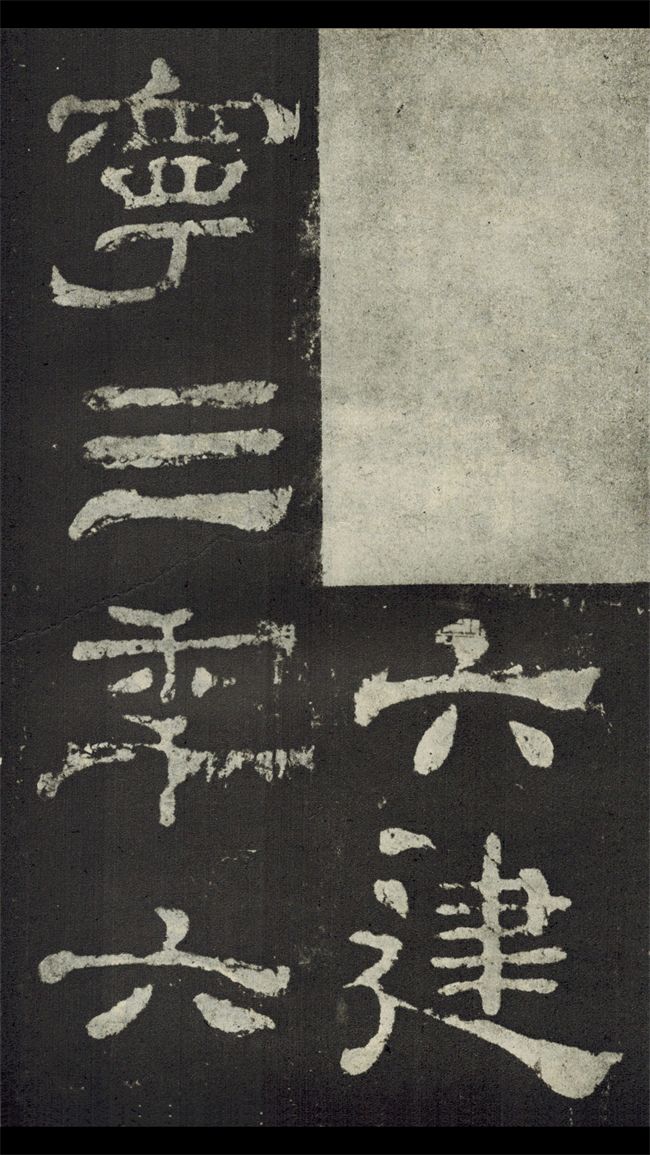 六建
寧三年六